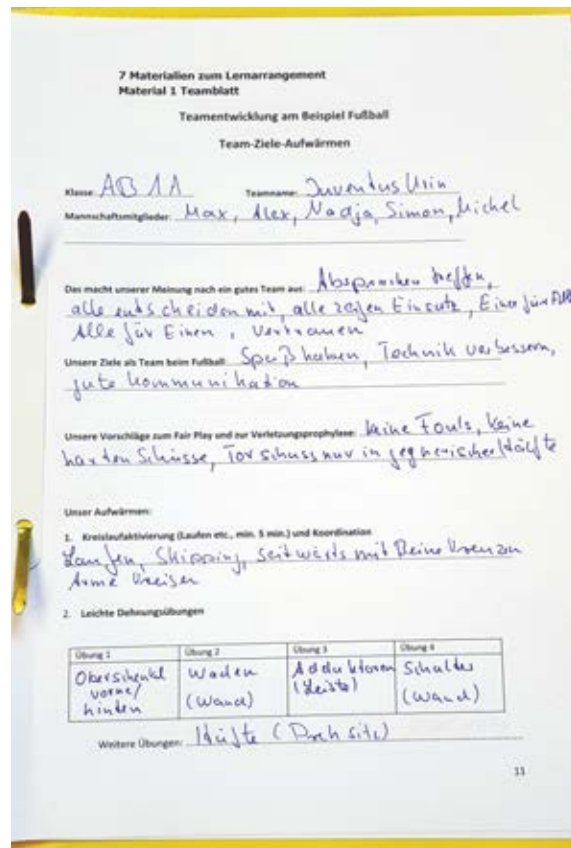 7 Materialien zum Lernarrangement
Material 1 Teamblatt
Teamentwicklung am Beispiel Fußball
Team-Ziele-Aufwärmen
Klasse: AB 11 Teamname: Juventus Urin
Mannschaftsmitglieder: Max, Alex, Nadja, Simon, Michel
Das macht unserer Meinung nach ein gutes Team aus: Absprachen treffen,
alle entscheiden mit, alle zeigen Einsatz, Einer für Alle
Alle für Einen, Vertrauen
Unsere Ziele als Team beim Fußball: Spaß haben, Technik verbessern,
gute Kommunikation
Unsere Vorschläge zum Fair Play und zur Verletzungsprophylaxe: keine Fouls, keine
harten Schüsse, Torschuss nur in gegnerischer Hälfte
Unser Aufwärmen:
1. Kreislaufaktivierung (Laufen etc., min. 5 min.) und Koordination
Laufen, Skipping, seitwärts mit Beine kreuzen
Arme kreisen
2. Leichte Dehnungsübungen
Übung 1 Übung 2 Übung 3 Übung 4
Oberschenkel Waden Adduktoren Schulter
vorne/ (Wand) (Leiste) (Wand)
hinten
Weitere Übungen: Hüfte (Drehsitz)
11